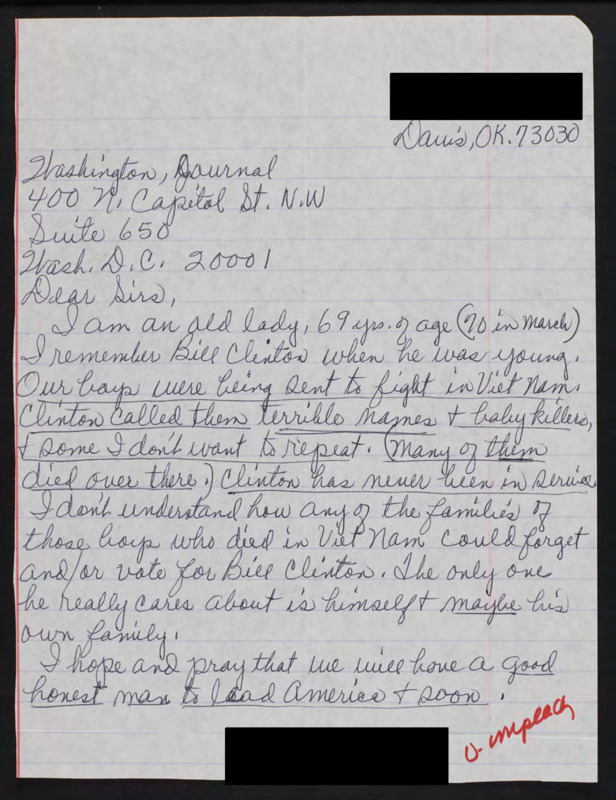 Davis, OK. 73030
Washington, Journal
400 N. Capitol St. N.W
Suite 650
Wash. D.C. 20001
Dear Sirs,
I am an old lady, 69 yrs. of age (70 in march)
I remember Bill Clinton when he was young.
Our boys were being sent to fight in Viet Nam.
Clinton called them terrible names & baby killers,
& some I don't want to repeat. (Many of them
died over there.) Clinton has never been in service
I don't understand how any of the families of
those boys who died in Viet Nam could forget
and/or vote for Bill Clinton. The only one
he really cares about is himself & maybe his
own family.
I hope and pray that we will have a good
honest man to lead America & soon.
impeach